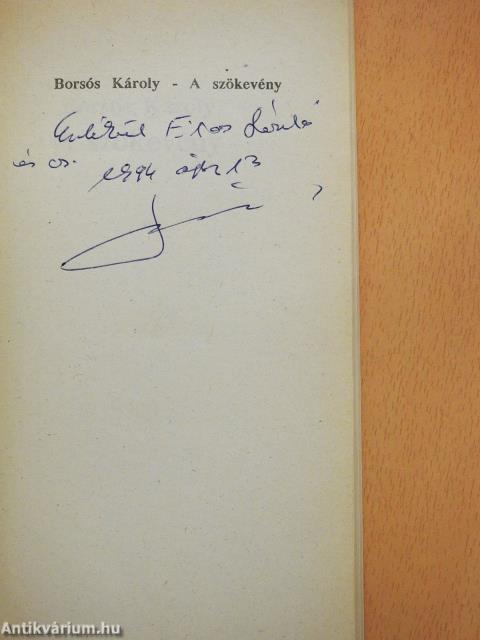 Borsós Károly - A szökevény
Emlékül Eros László
és cs. 1994 ápr 13
Antikvárium.hu